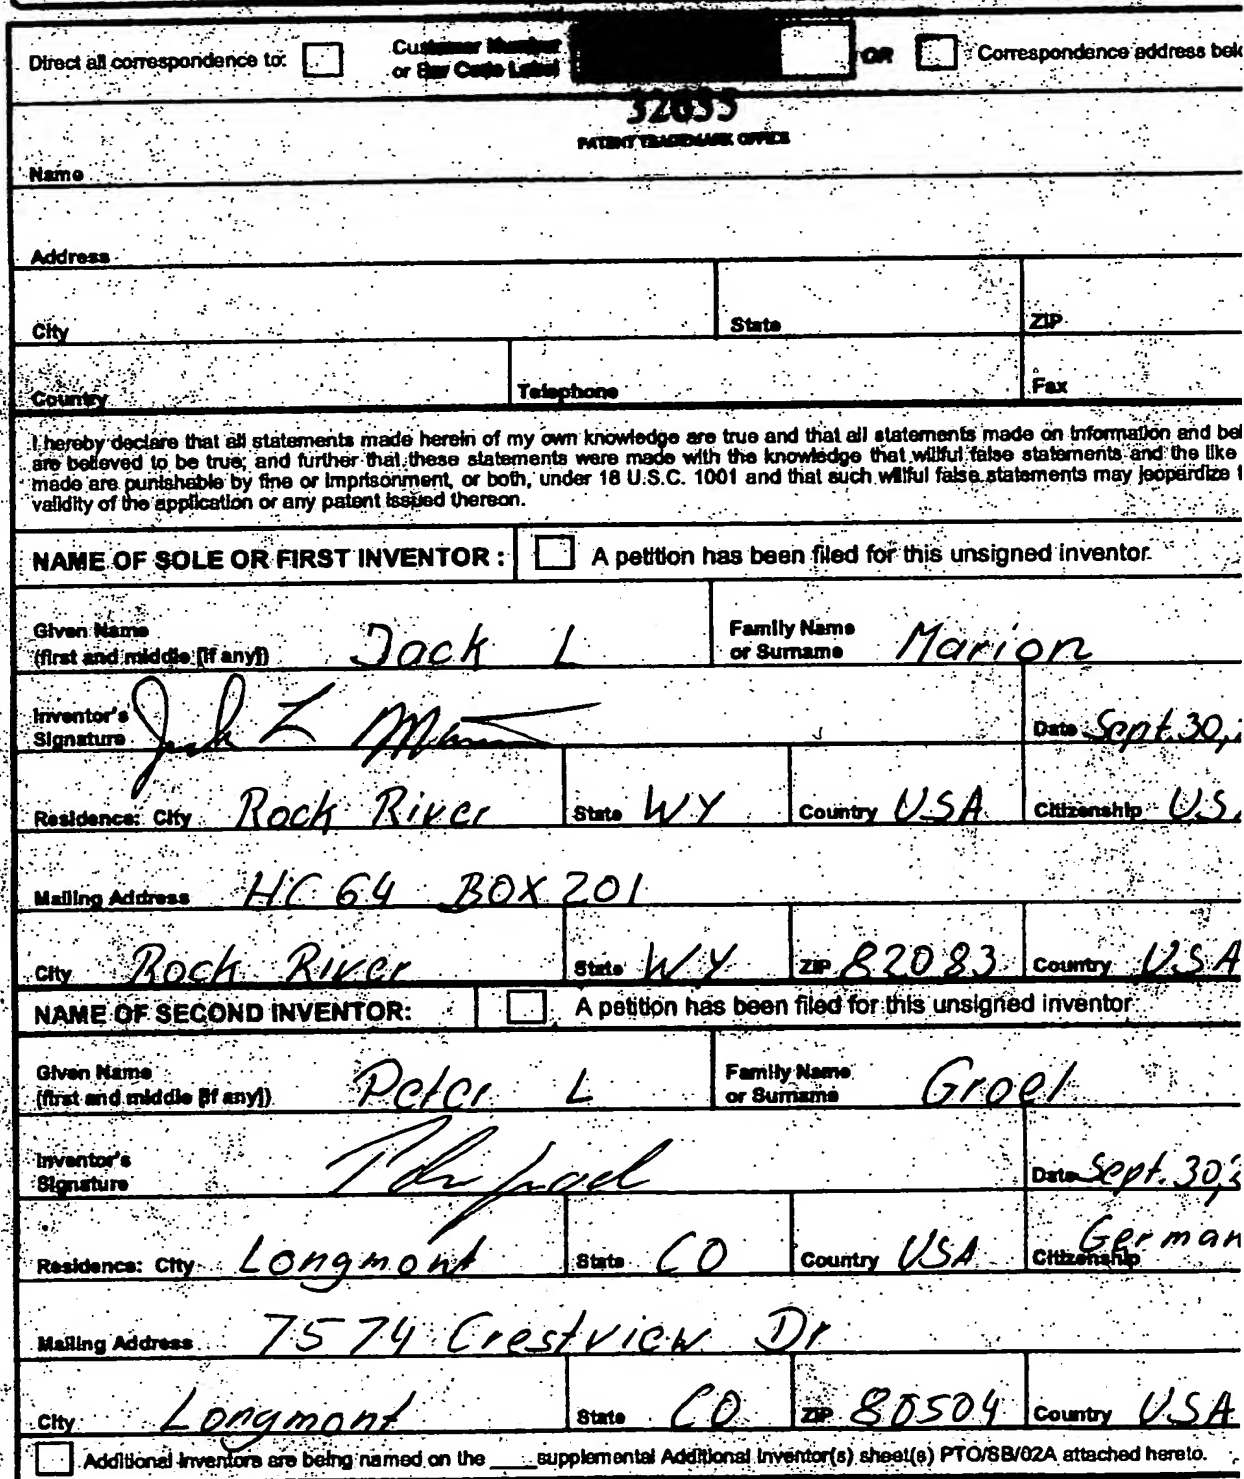 Direct all correspondence to: Customer Number OR Correspondence address
or Bar Code Label
PATENT TRADEMARK OFFICE
Name
Address
City State ZIP
Country Telephone Fax
I hereby declare that all statements made herein of my own knowledge are true and that all statements made on information and
are believed to be true; and further that these statements were made with the knowledge that willful false statements and the like
made are punishable by fine or imprisonment, or both, under 18 U.S.C. 1001 and that such willful false statements may jeopardize
validity of the application or any patent issued thereon.
NAME OF SOLE OR FIRST INVENTOR : A petition has been filed for this unsigned inventor.
Given Name
(first and middle [if any]) Jack L Family Name
or Surname Marion
Inventor's
Signature Jack L Date Sept. 30,
Residence: City Rock River State WY Country USA Citizenship US
Mailing Address HC 64 BOX 201
City Rock River State WY ZIP 82083 Country USA
NAME OF SECOND INVENTOR: A petition has been filed for this unsigned inventor
Given Name
(first and middle [if any]) Peter L Family Name
or Surname Groel
Inventor's
Signature Date Sept. 30,
Residence: City Longmont State CO Country USA Citizenship German
Mailing Address 7574 Crestview Dr
City Longmont State CO ZIP 80504 Country USA
Additional inventors are being named on the ____supplemental Additional Inventor(s) sheet(s) PTO/SB/02A attached hereto.